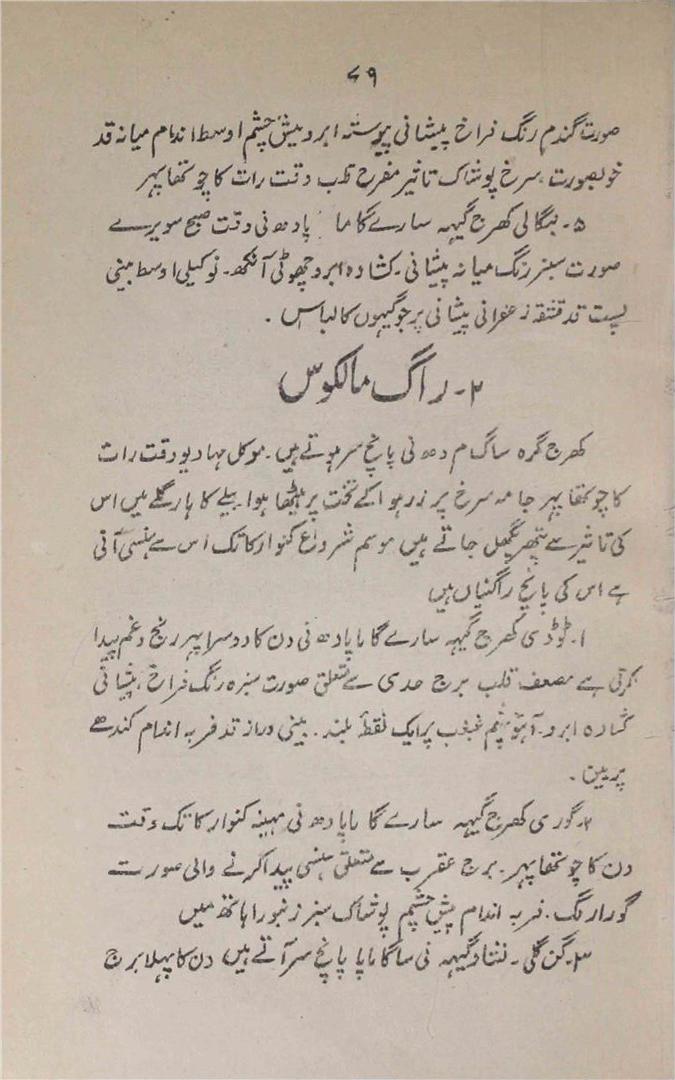 ۷۹
صورت گندم رنگ فراخ پیشانی پیوستہ ابرو میش چشم اوسط اندام میانہ قد
خوبصورت، سرخ پوشاک تاثیر مفرح قلب وقت رات کا چوتھا پہر
۵۔ بنگالی کھرج گیہہ سارے گا ما پا دھ نی وقت صبح سویرے
صورت سبز رنگ میانہ پیشانی۔ کشادہ ابرو چھوٹی آنکھ۔ نوکیلی اوسط بینی
پست قد قشقہ زعفرانی پیشانی پر جوگیہوں کا لباس ۔
۲۔ راگ مالکوس
کھرج گرہ سا گ م دھ نی پانچ سر ہوتے ہیں۔ موکل مہادیو وقت رات
کا چوتھا پہر جامہ سرخ پر زر ہوا کے تخت پر بیٹھا ہوا بیلے کا ہار گلے میں اس
کی تاثیر سے پتھر پگھل جاتے ہیں موسم شروع کنوار کاتک اس سے ہنسی آتی
ہے اس کی پانچ راگنیاں ہیں
۱۔ ٹوڈی کھرج گیہہ سارے گا ما پا دھ نی دن کا دوسرا پہر رنج و غم پیدا
کرتی ہے مضعف قلب برج جدی سے متعلق صورت سبزہ رنگ فراخ، پیشانی
کشادہ ابرو۔ آہو چشم غبغب پر ایک نقطہ بلند۔ بینی دراز قد فربہ اندام کندھے
پر بین ۔
۲۔ گوری کھرج گیہہ سارے گا ما پا دھ نی مہینہ کنوار کاتک وقت
دن کا چوتھا پہر۔ برج عقرب سے متعلق ہنسی پیدا کرنے والی صورت
گورا رنگ۔ فربہ اندام میش چشم پوشاک سبز زنبورا ہاتھ میں
۳۔ گن گلی۔ نشاد گیہہ نی سا گا ما پا پانچ سر آتے ہیں دن کا پہلا برج